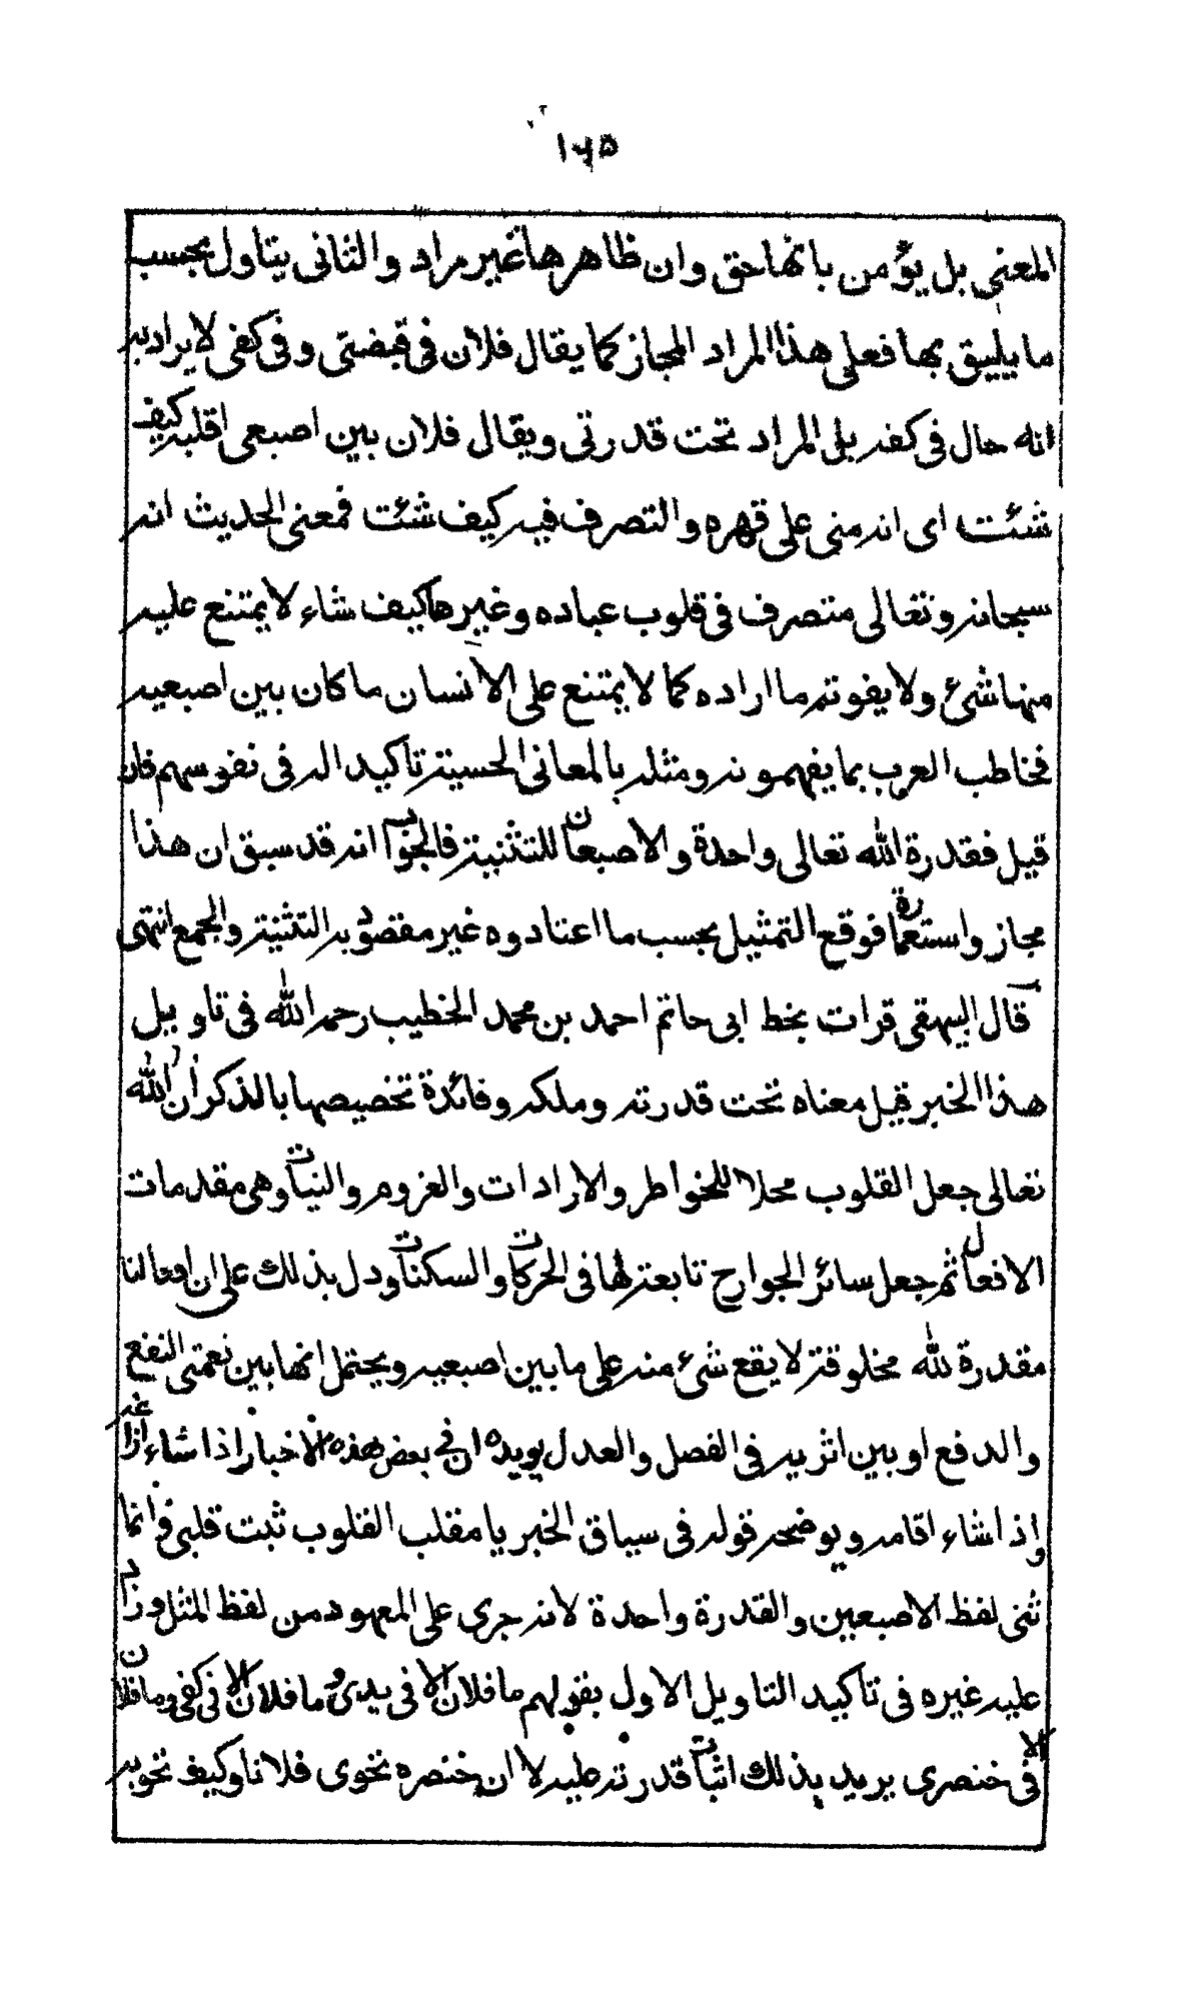 ١٦٥
المعنى بل يؤمن بانها حق وان ظاهرها غير مراد والثانى يتاول بحسب
ما يليق بها فعلى هذا المراد المجاز كما يقال فلان فى قبضتى وفى كفى لا يراد به
انه حال فى كفه بل المراد تحت قدرتى ويقال فلان بين اصبعى اقلبه كيف
شئت اى انه منى على قهره والتصرف فيه كيف شئت فمعنى الحديث انه
سبحانه وتعالى متصرف فى قلوب عباده وغيرها كيف شاء لا يمتنع عليه
منها شئ ولا يفوته ما اراده كما لا يمتنع على الانسان ما كان بين اصبعيه
فخاطب العرب بما يفهمونه ومثله بالمعانى الحسية تاكيدا له فى نفوسهم فان
قيل فقدرة الله تعالى واحدة والاصبعان للتثنية فالجواب انه قد سبق ان هذا
مجاز واستعارة فوقع التمثيل بحسب ما اعتادوه غير مقصود به التثنية والجمع انتهى
قال البيهقى قرات بخط ابى حاتم احمد بن محمد الخطيب رحمه الله فى تاويل
هذا الخبر قيل معناه تحت قدرته وملكه وفائدة تخصيصها بالذكر ان الله
تعالى جعل القلوب محلا للخواطر والارادات والعزوم والنيات وهى مقدمات
الافعال ثم جعل سائر الجوارح تابعة لها فى الحركات والسكنات ودل بذلك على ان افعالنا
مقدرة لله مخلوقة لا يقع شئ منه على ما بين اصبعيه ويحتمل انها بين نعمتى النفع
والدفع او بين اثريه فى الفصل والعدل يويده ان فى بعض هذه الاخبار اذا شاء ازاغه
واذا شاء اقامه ويوضحه قوله فى سياق الخبر يا مقلب القلوب ثبت قلبى وانما
ثنى لفظ الاصبعين والقدرة واحدة لانه جرى على المعهود من لفظ المثل وزاد
عليه غيره فى تاكيد التاويل الاول بقولهم ما فلان الا فى يدى وما فلان الا فى كفى وما فلان
الا فى خنصرى يريد بذلك اثبات قدرته عليه لا ان خنصره تحوى فلانا وكيف تحويه